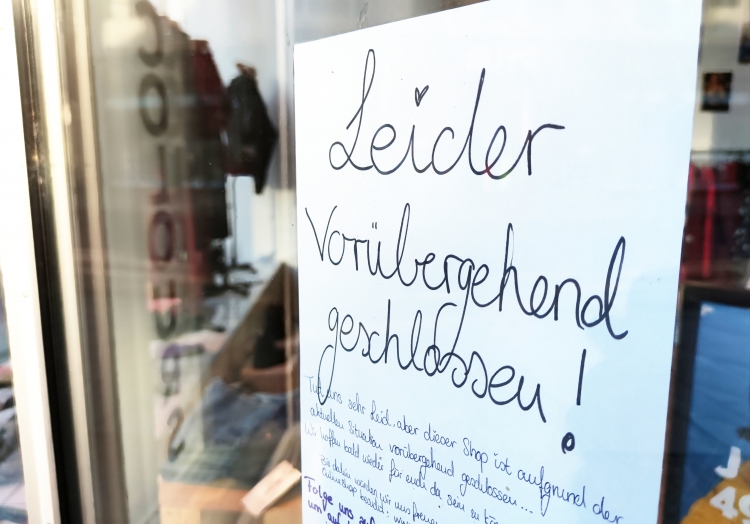 Leider
Vorübergehend
geschlossen!
Tut uns sehr Leid, aber dieser Shop ist aufgrund der
aktuellen Situation vorübergehend geschlossen...
Wir hoffen bald wieder für euch da sein zu
Bis dahin würden wir uns freuen
Onlineshop besucht
Folge uns auf
um auf
J
49